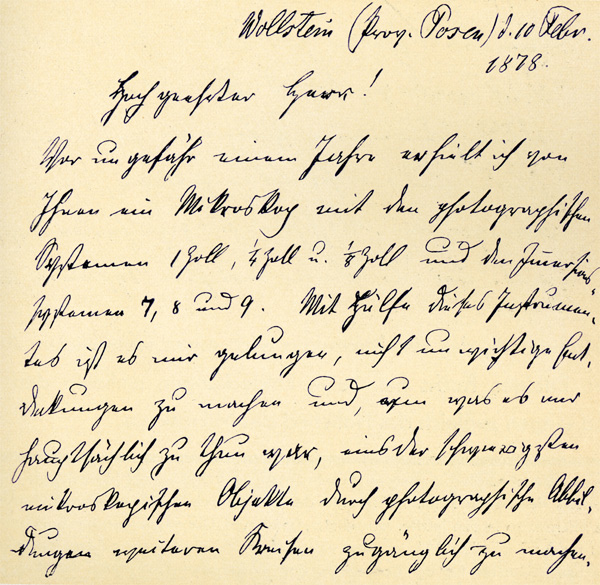 Wollstein (Prov. Posen) d. 10 Febr.
1878.
Hochgeehrter Herr!
Vor ungefähr einem Jahre erhielt ich von
Ihnen ein Mikroskop mit den photographischen
Systemen 1 Zoll, ¼ Zoll u. ⅛ Zoll und den Immersions
systemen 7, 8 und 9. Mit Hülfe dieses Instrumen-
tes ist es mir gelungen, nicht unwichtige Ent-
dekungen zu machen und, um was es mir
hauptsächlich zu thun war, eins der schwierigsten
mikroskopischen Objekte durch photographische Abbil-
dungen weiteren Kreisen zugänglich zu machen.